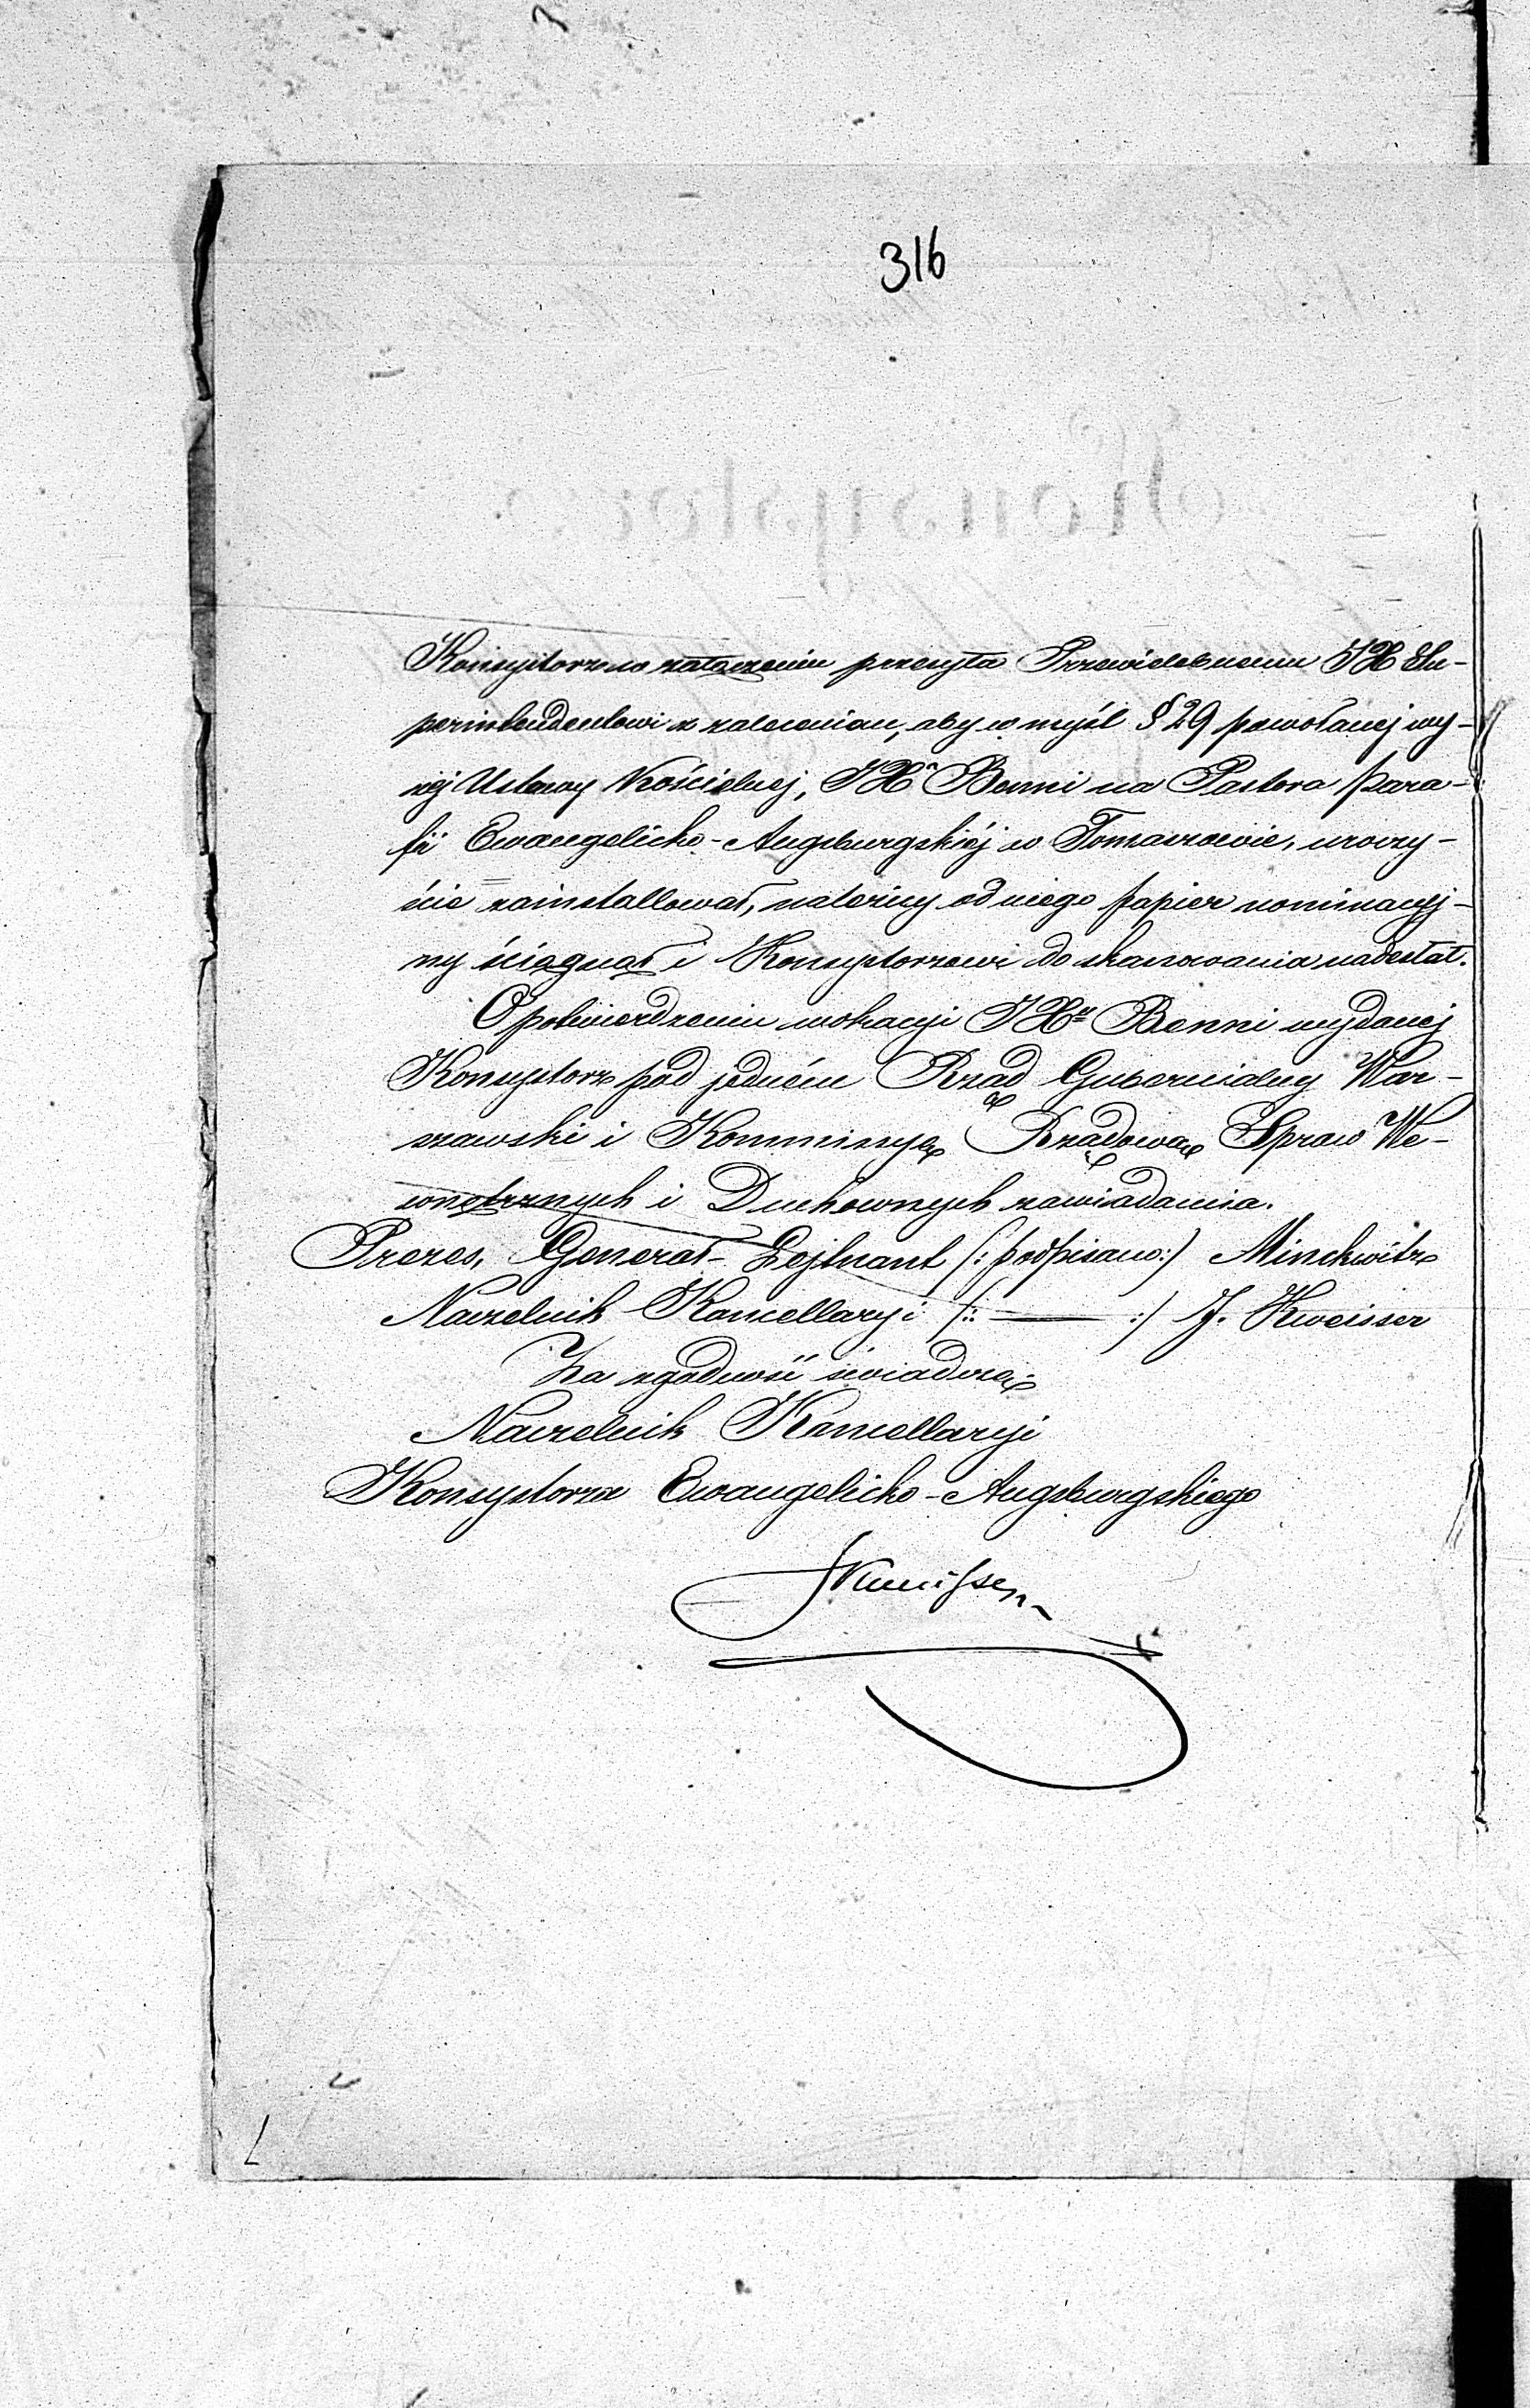 316
Konsystorz w załączeniu przesyła Przewielebnemu JX Su-
perintendentowi z zaleceniem, aby w myśl § 29 powołanej wy-
żej Ustawy Kościelnej, JXa Benni na Pastora para-
fii Ewangelicko-Augsburgskiej w Tomaszowie, uroczy-
ście zainstallował, należny od niego papier nominacyj-
ny ściągnął i Konsystorzowi do skasowania nadesłał.
O potwierdzeniu wokacyi JXu Benni wydanej
Konsystorz pod jedném Rząd Gubernialny War-
szawski i Kommissyą Rządową Spraw We-
wnętrznych i Duchownych zawiadamia.
Prezes, Generał-Lejtnant (: podpisano :) Minckwitz
Naczelnik Kancellaryi (: —— :) J. Kweisser
Za zgodność świadczę
Naczelnik Kancellaryi
Konsystorza Ewangelicko-Augsburgskiego